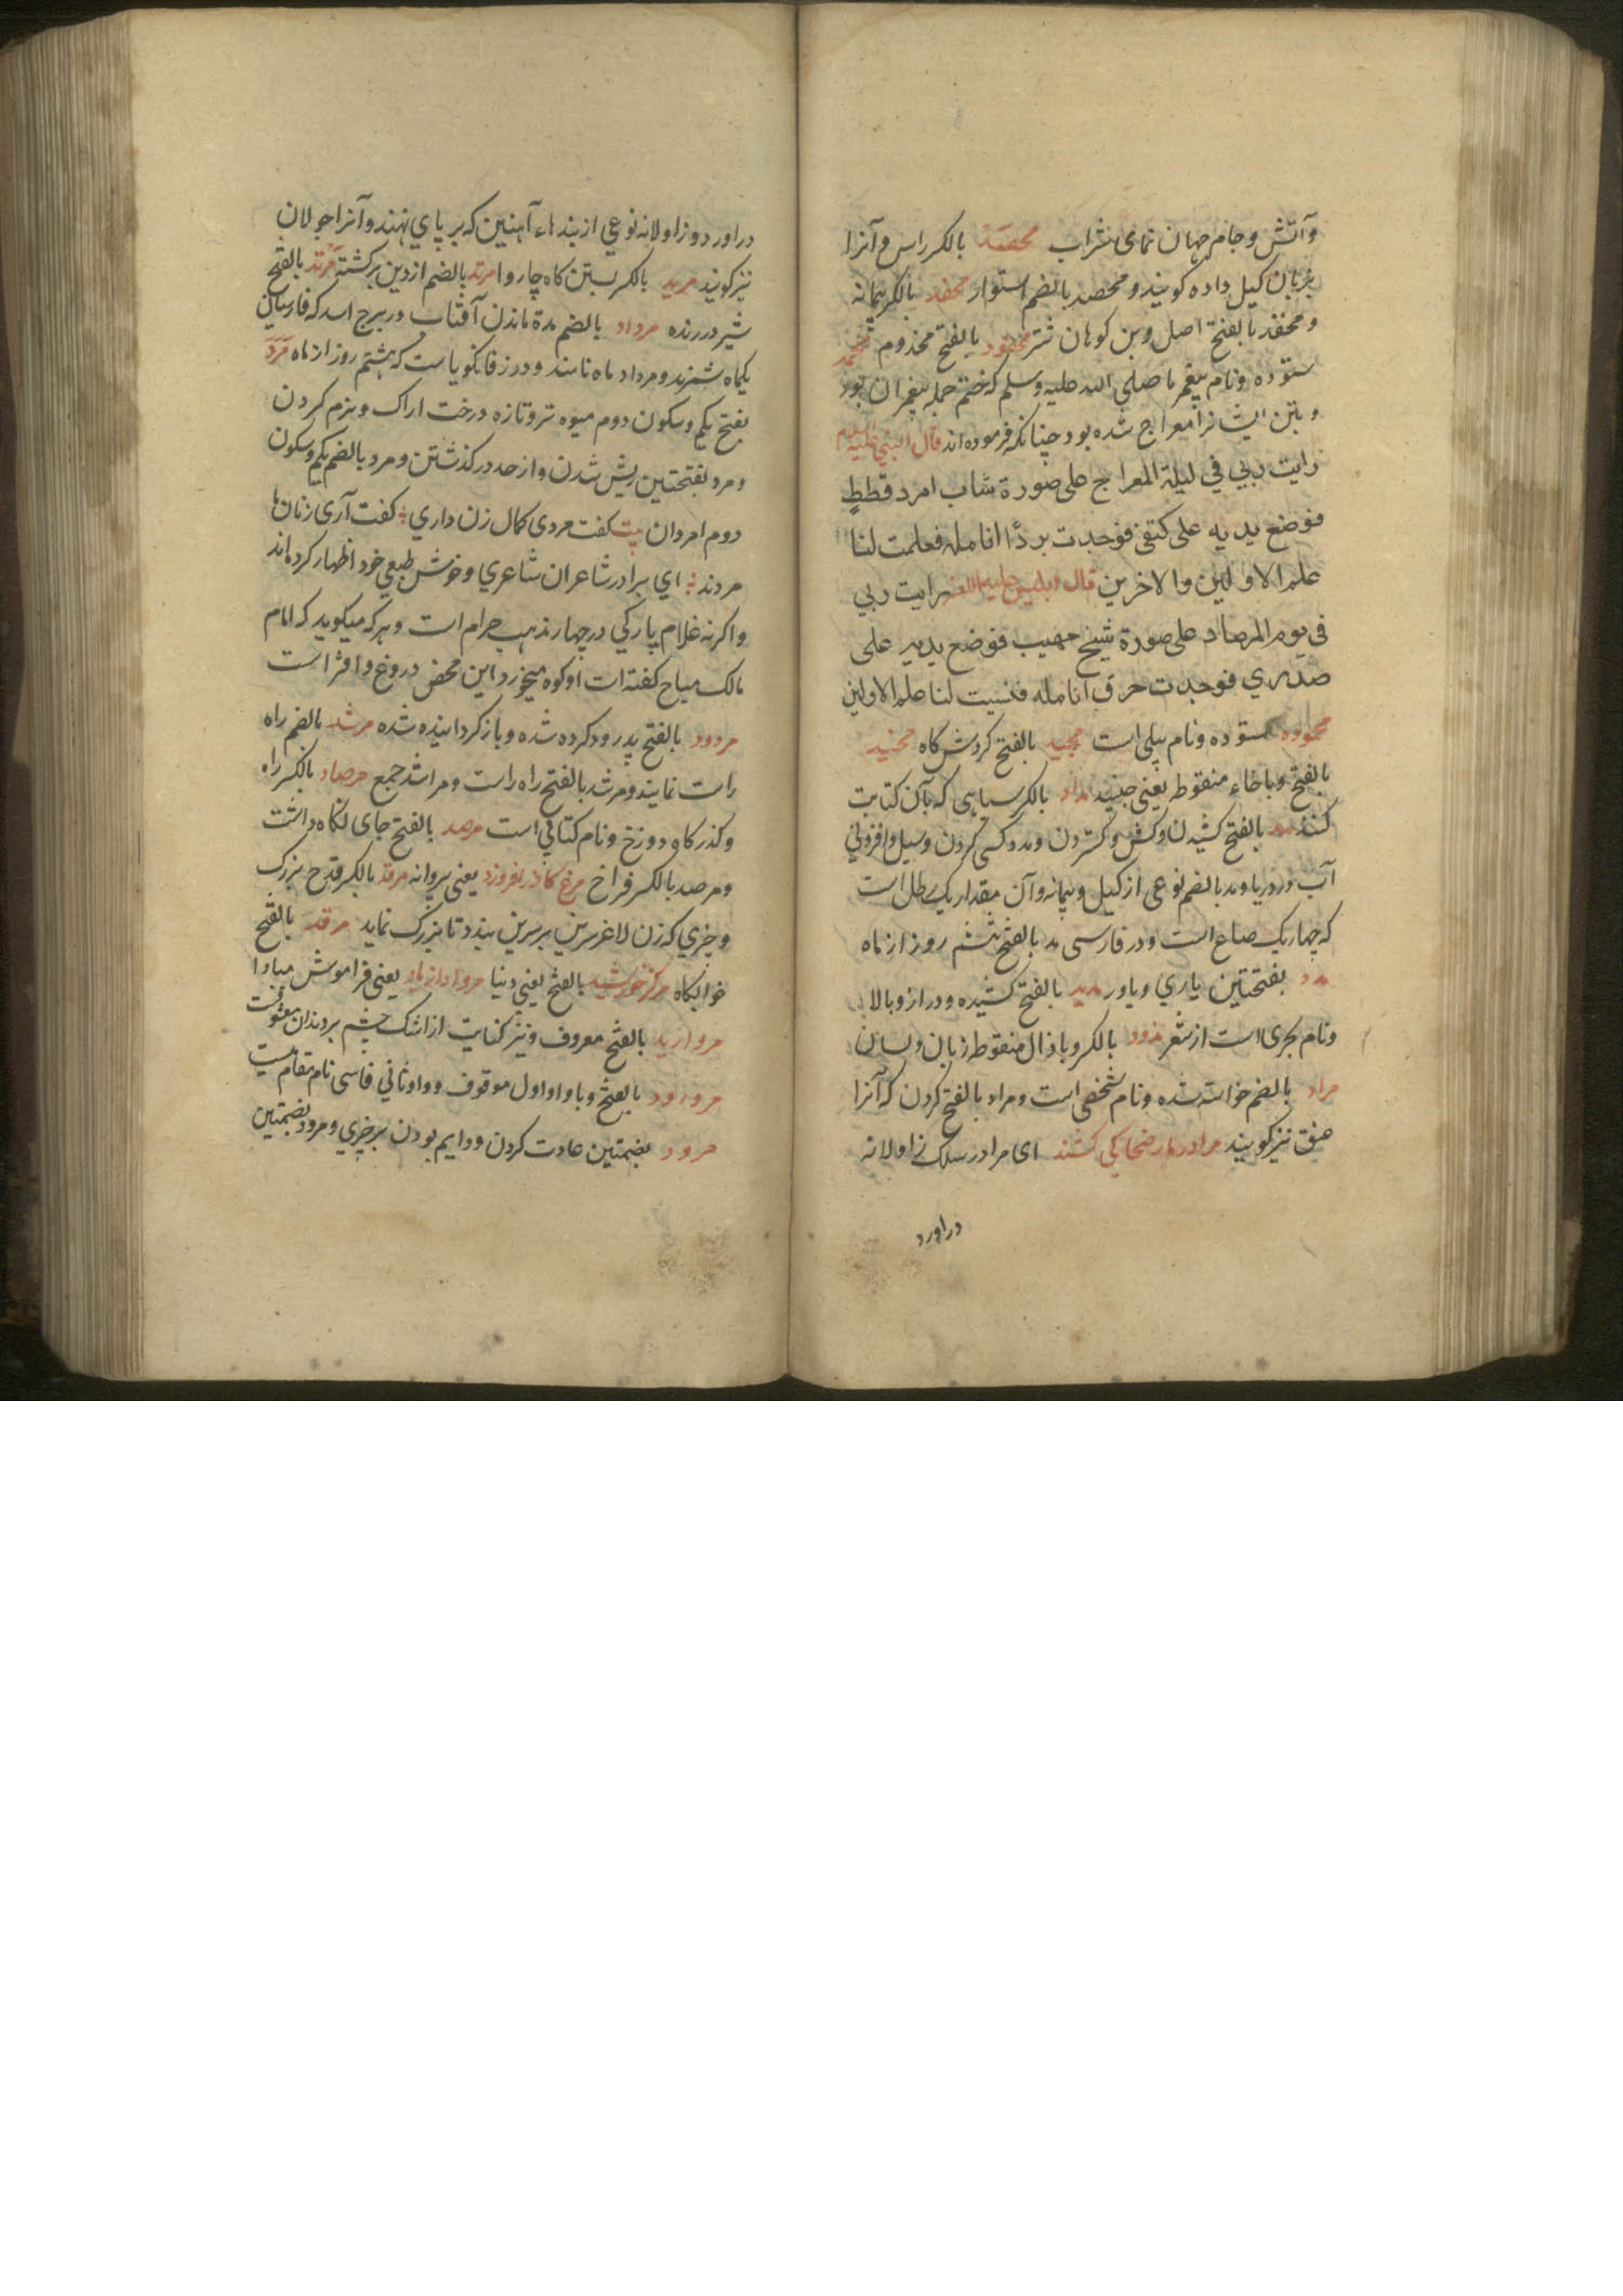 وآتش وجام جهان نمای شراب محصد بالکسر راس وآنرا
بزبان کیل داده کویند ومحصد بالضم استوار محفد بالکسر پیمانه
ومحفد بالفتح اصل وبن کوهان شتر محفود بالفتح مخدوم محمد
ستوده ونام پیغمبر ما صلی الله علیه وسلم که ختم جمله پیغمبران بود
وبتن ایشانرا معراج شده بود چنانکه فرموده اند قال النبي علیه السلام
رایت ربي في لیلة المعراج علی صورة شاب امرد قطط
فوضع یدیه علی کتفي فوجدت بردا انامله فعلمت لنا
علم الاولین والاخرین قال ابلیس علیه اللعنة رایت ربي
فی یوم المرصاد علی صورة شیخ مهیب فوضع یدیه علی
صدري فوجدت حرق انامله فنسیت لنا علم الاولین
محموده ستوده ونام پیلی است مجید بالفتح کردش کاه مخید
بالفتح وباخاء منقوطه یعنی جنید مداد بالکسر سیاهی که بآن کتابت
کنند مد بالفتح کشیدن وکفش وکستردن ومدد کسی کردن وسیل وافزونی
آب در دریا ومد بالضم نوعی از کیل وپیمانه وآن مقدار یک رطل است
که چهار یک صاع است ودر فارسی مد بالفتح ششم روز از ماه
مدد بفتحتین یاري ویاور مدید بالفتح کشیده ودراز وبالا
ونام بحری است از شعر مذود بالکسر وباذال منقوطه زبان ولسان
مراد بالضم خواسته شده ونام شخصی است ومراد بالفتح کردن که آنرا
عنق نیز کویند مرا در مار ضحاکی کشند ای مرا در سلک زاولانه
دراورد
دراورد وزاولانه نوعي از بندهاء آهنین که بر پاي نهند وآنرا جولان
نیز کویند مربد بالکسر بستن کاه چاروا مرتد بالضم از دین برکشته مرثد بالفتح
شیر درنده مرداد بالضم مدة ماندن آفتاب در برج اسد که فارسیان
یکماه شمرند ومرداد ماه نامند ودر زفانکویا ست که هشتم روز از ماه مرد
بفتح یکم وسکون دوم میوه تر وتازه درخت اراک ونرم کردن
ومرد بفتحتین ریش شدن واز حد در کذشتن ومرد بالضم یکم وسکون
دوم امردان بیت کفت مردی کمال زن داري کفت آری زنان ما
مردند ای برادر شاعران شاعري وخوش طبعي خود اظهار کرده اند
واکرنه غلام پارکي در چهار مذهب حرام است وهرکه میکوید که امام
مالک مباح کفته است اوکوه میخورد این محض دروغ وافترا است
مردود بالفتح پدرود کرده شده وباز کردانیده شده مرشد بالضم راه
راست نماینده ومرشد بالفتح راه راست ومراشد جمع مرصاد بالکسر راه
وکذرکاه ودوزخ ونام کتابي است مرصد بالفتح جای نکاه داشت
ومرصد بالکسر فراخ مرغ کاذر بفروزد یعنی پروانه مرفد بالکسر قدح بزرک
وچیزي که زن لاغر سرین بر سرین بندد تا بزرک نماید مرقد بالفتح
خوابکاه مرکز خورشید بالفتح یعني دنیا مرواد از یاد یعنی فراموش مبادا
مروارید بالفتح معروف ونیز کنایت از اشک چشم بر دندان معشوقست
مرورود بالفتح وباواو اول موقوف وواو ثاني فارسی نام مقام میست
مرود بضمتین عادت کردن ودایم بودن بر چیزي ومرود بضمتین